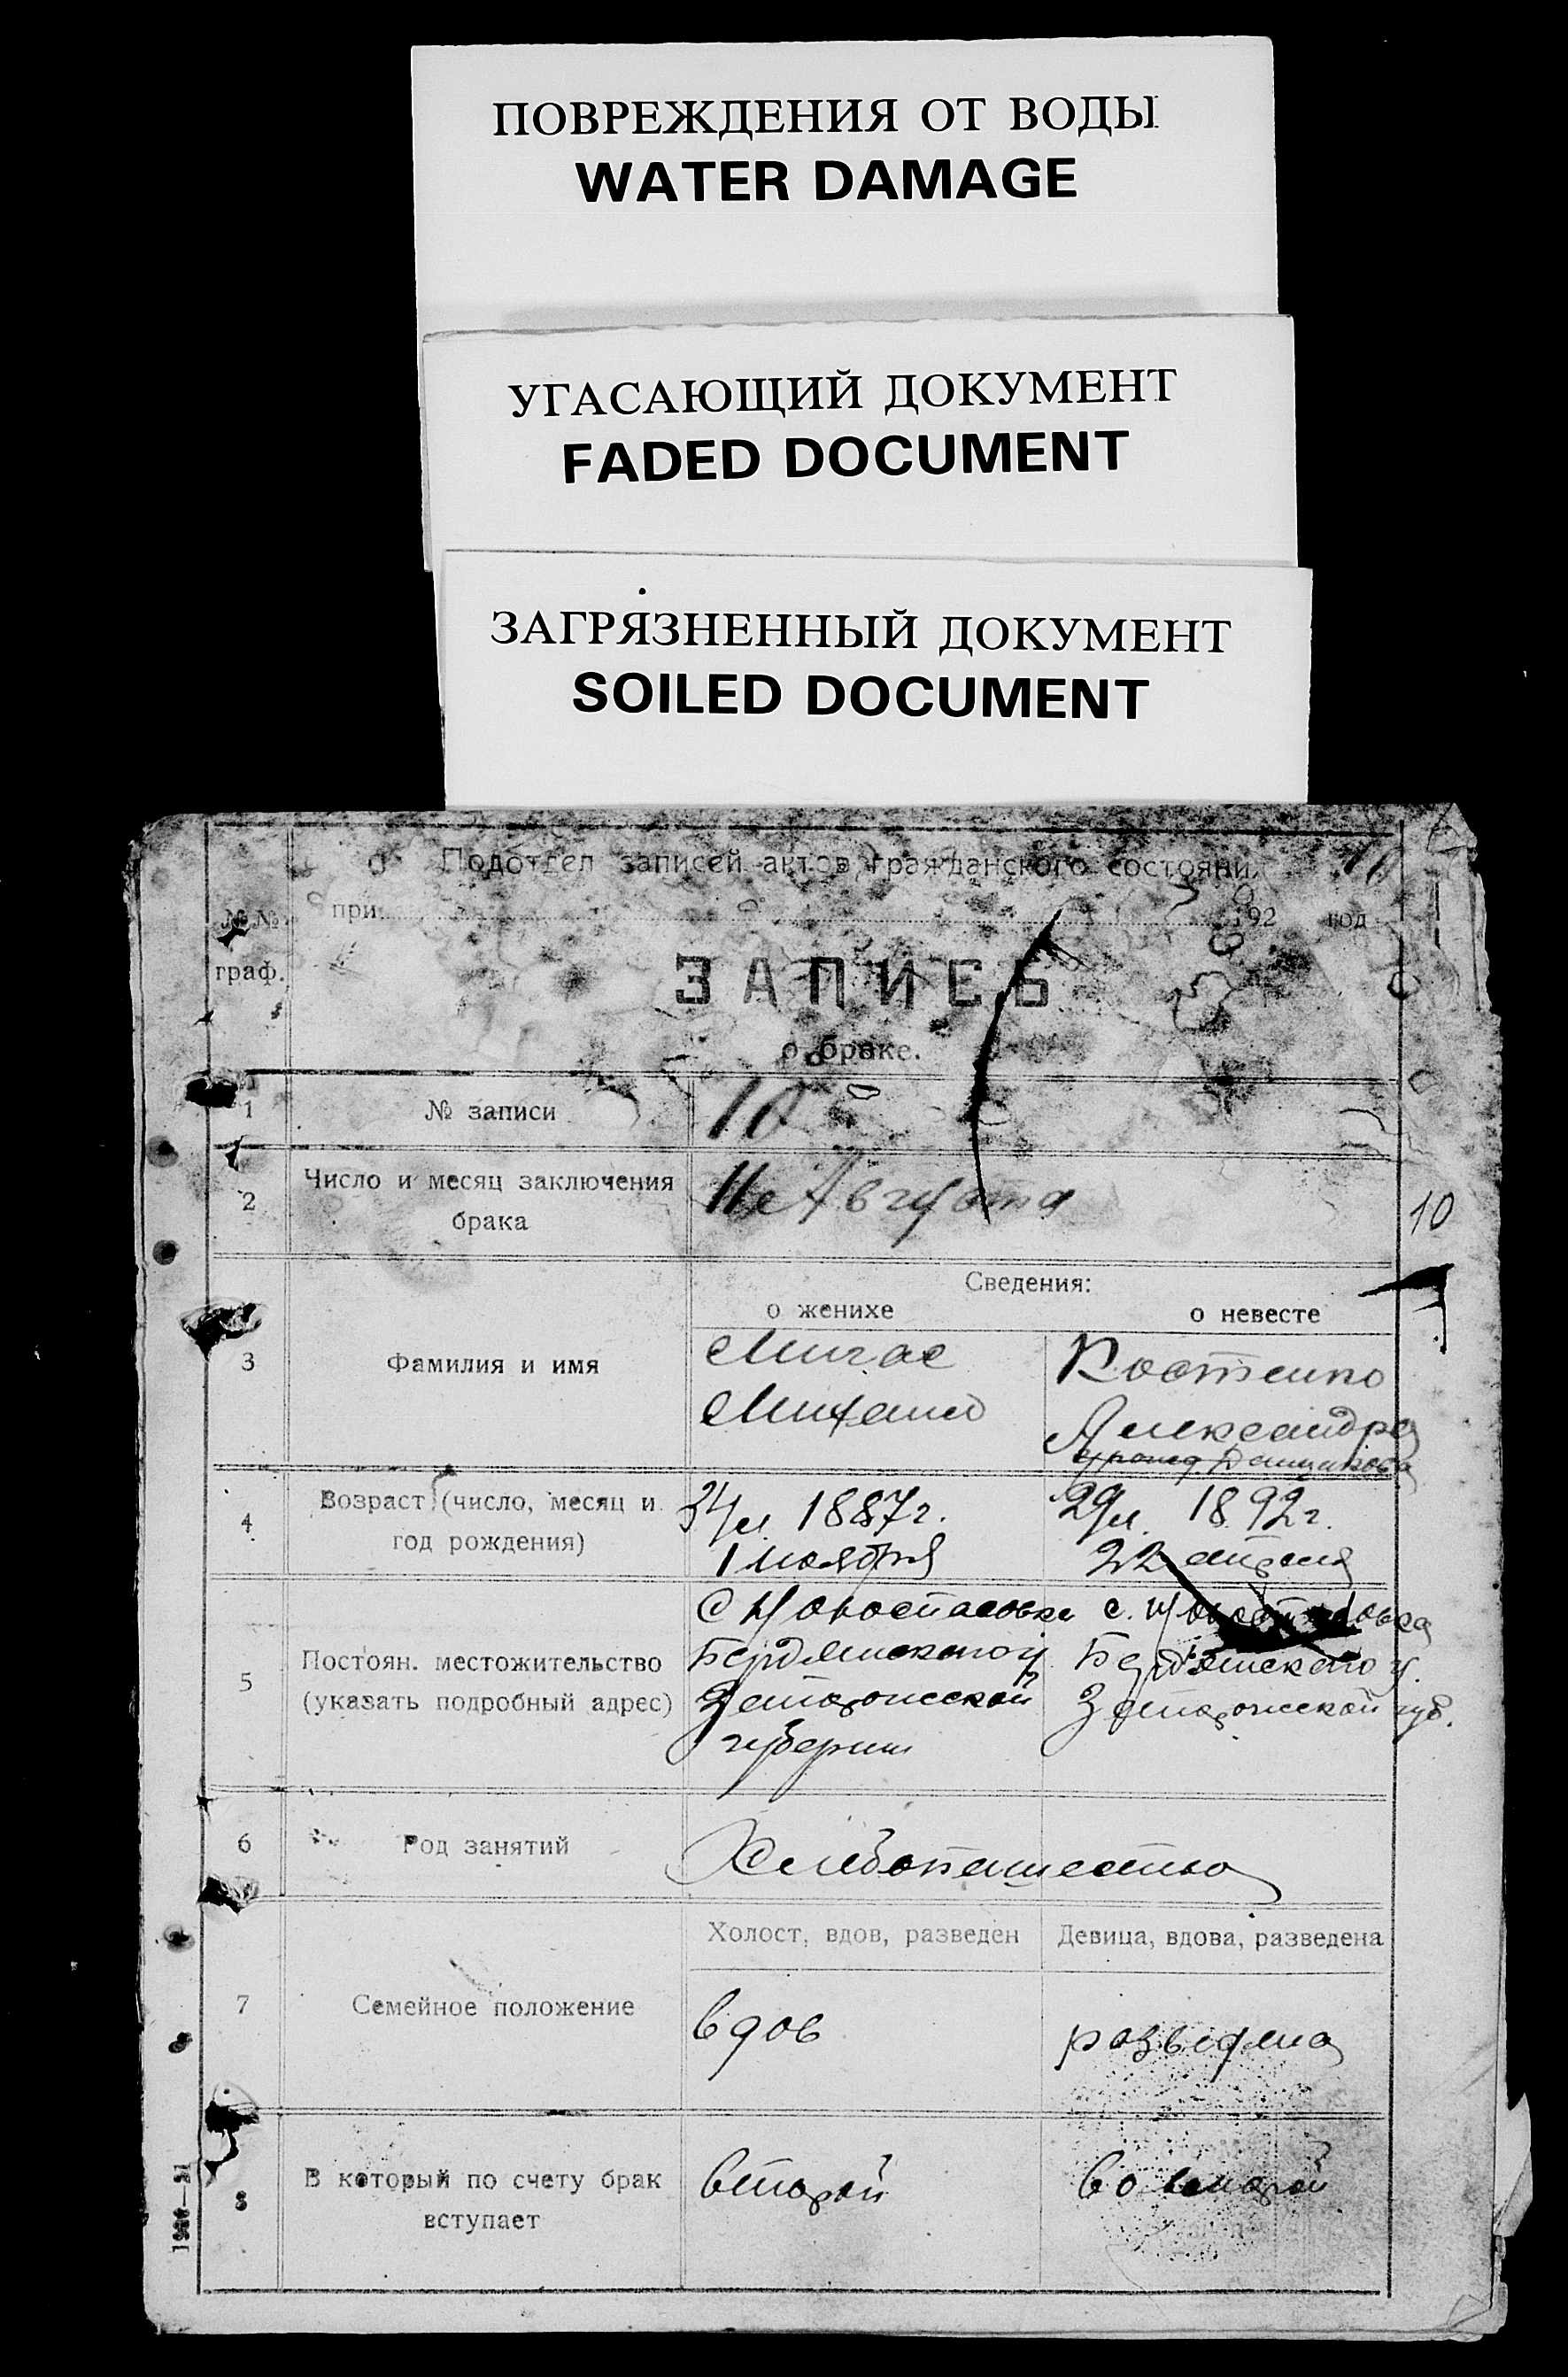 ПОВРЕЖДЕНИЯ ОТ ВОДЫ
WATER DAMAGE
УГАСАЮЩИЙ ДОКУМЕНТ
FADED DOCUMENT
ЗАГРЯЗНЕННЫЙ ДОКУМЕНТ
SOILED DOCUMENT
Подотдел записей актов гражданского состояни
№№ при 192 год
граф.
ЗАПИСЬ
о браке.
1 № записи 10
2 Число и месяц заключения брака 11 Августа
10
Сведения:
о женихе о невесте
3 Фамилия и имя
Мигас Костенко
Михаил Александра
4 Возраст (число, месяц и год рождения)
34 л. 1887 г. 29 л. 1892 г.
1 ноября 22 апреля
5 Постоян. местожительство (указать подробный адрес)
С Новоспасовка с. Новоспасовка
Бердянского у Бердянского у.
Запорожской Запорожской губ.
губернии
6 Род занятий Хлебопашество
Холост, вдов, разведен Девица, вдова, разведена
7 Семейное положение вдов розведена
8 В который по счету брак вступает второй во второй